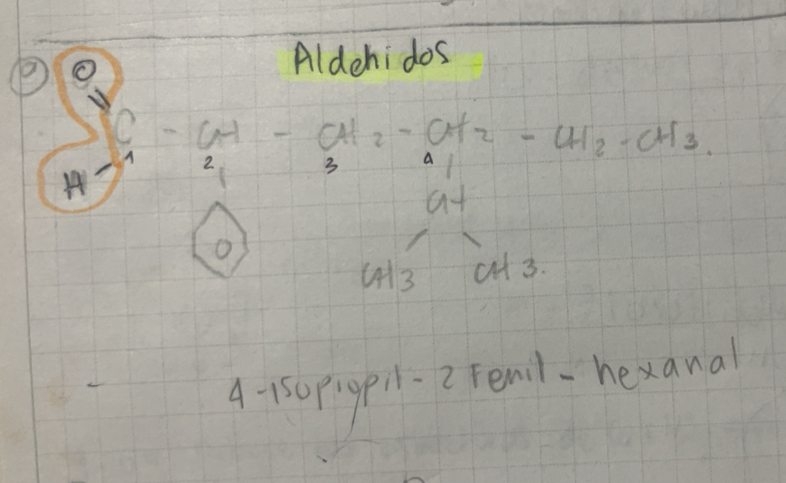 Aldehidos
9) O
C - CH - CH2 - CH2 - CH2 - CH3.
H 1 2 3 4
CH
CH3 CH3.
- 4-isopropil - 2 Fenil - hexanal